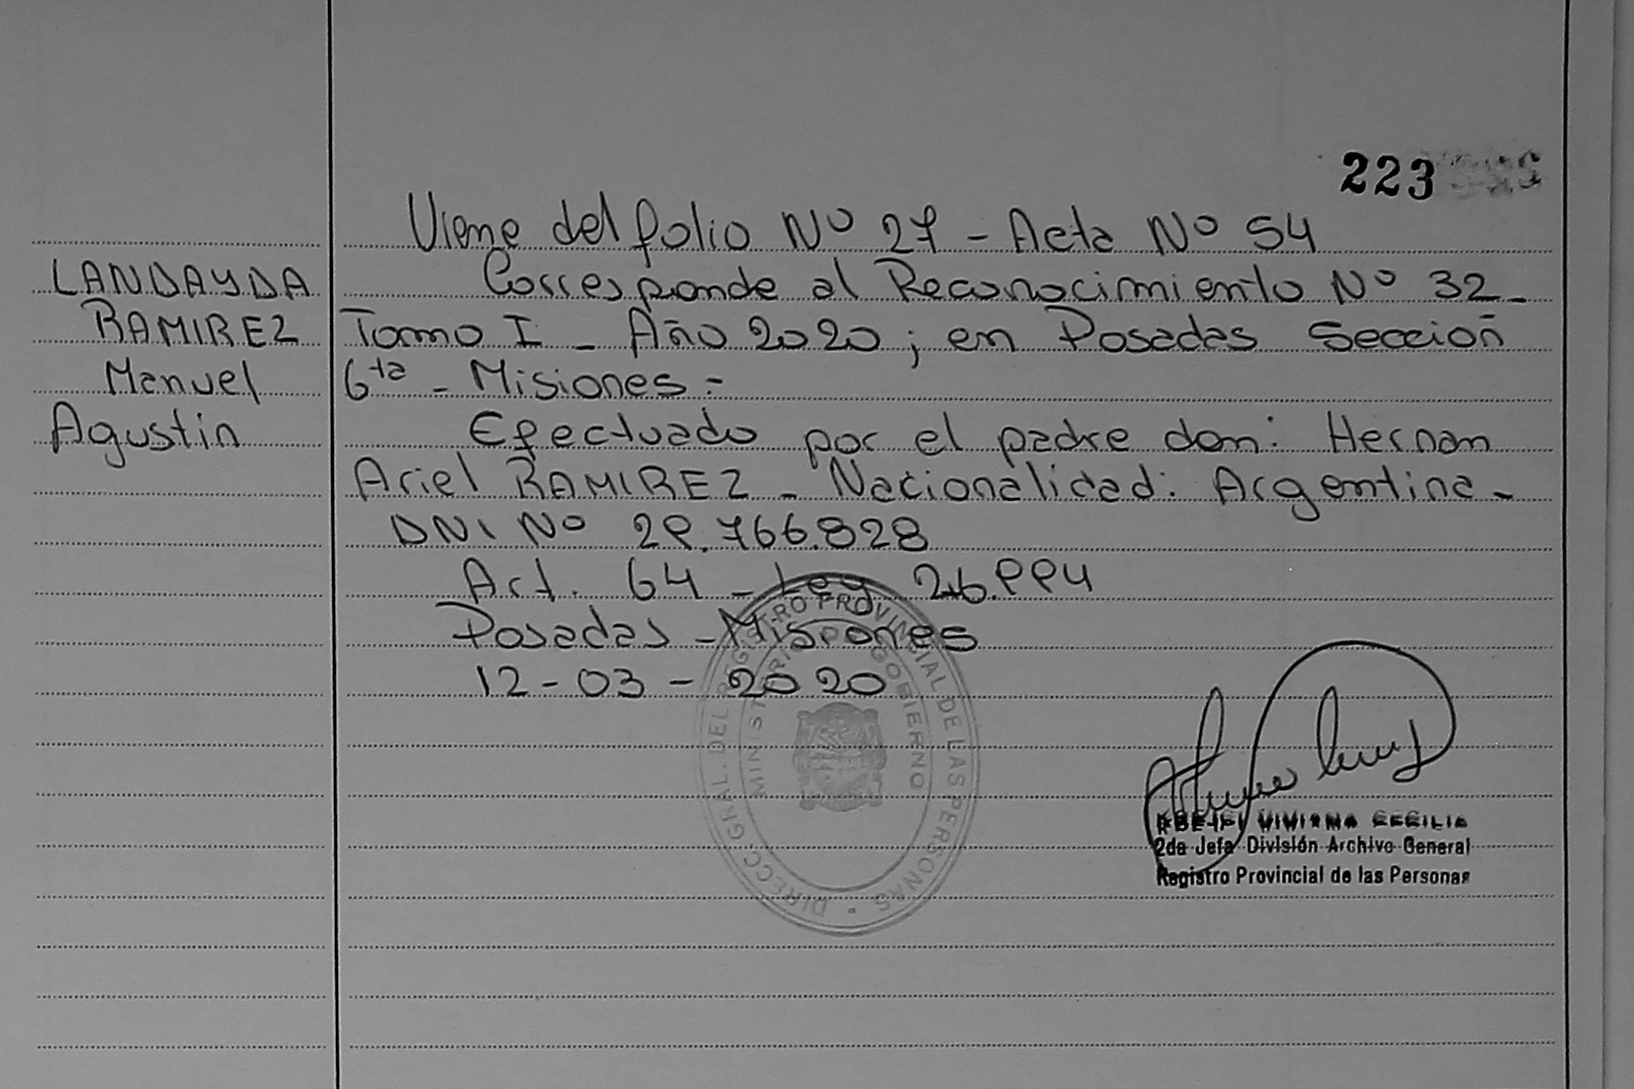 223
Viene del folio Nº 27 - Acta Nº 54
LANDAYDA
RAMIREZ
Manuel
Agustin
Corresponde al Reconocimiento Nº 32 -
Tomo I - Año 2020 ; en Posadas Sección
6ta - Misiones =
Efectuado por el padre don: Hernan
Ariel RAMIREZ - Nacionalidad: Argentina -
DNI Nº 29.766.828
Art. 64 - Ley 26.994
Posadas - Misiones
12-03-2020
DIRECC. GRAL. DEL REGISTRO PROVINCIAL DE LAS PERSONAS
MINISTERIO DE GOBIERNO
VIVIANA CECILIA
2da Jefa División Archivo General
Registro Provincial de las Personas